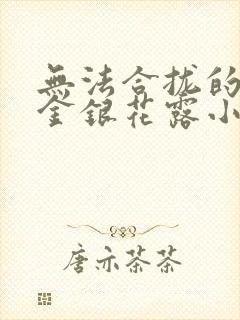 無法合拢的
金銀花露小
唐亦茶茶